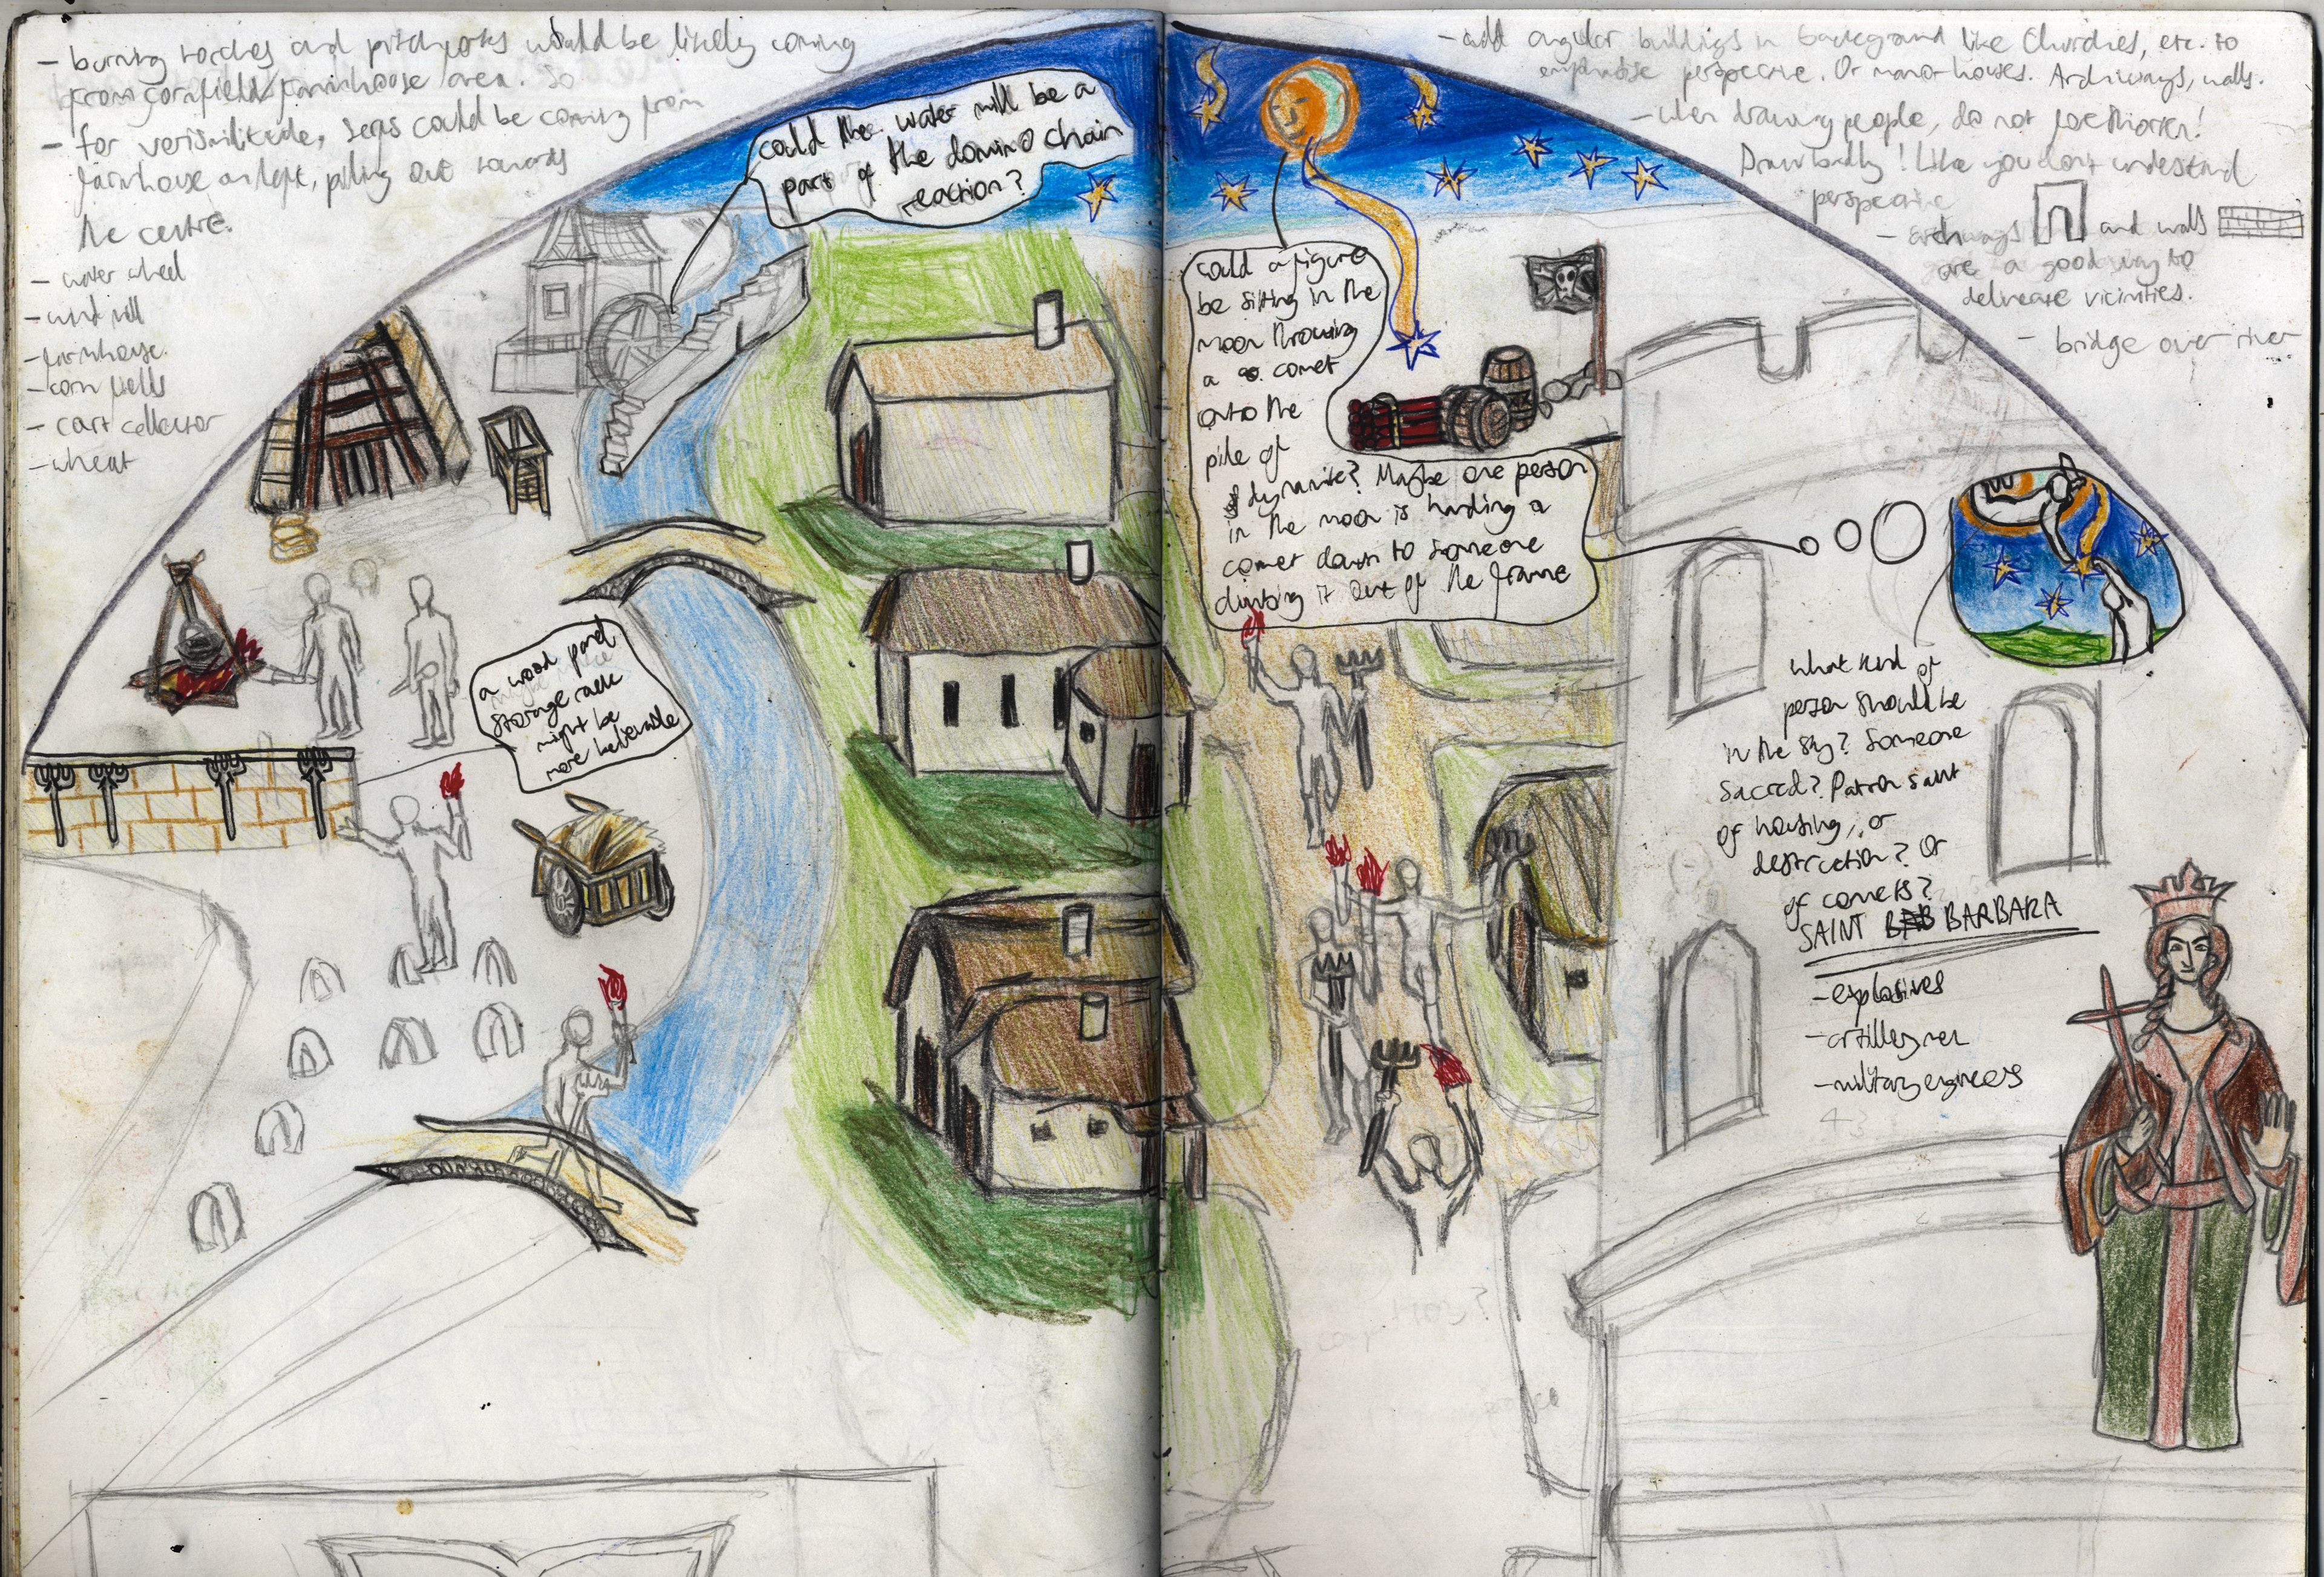 - burning torches and pitchforks would be likely coming
from cornfield/farmhouse area. So
- for verisimilitude, serfs could be coming from
farmhouse on left, piling out towards
the centre.
- water wheel
- wind mill
- farmhouse.
- corn fields
- cart collector
- wheat
could the water mill be a
part of the domino chain
reaction?
a wood panel
storage rack
might be
more believable
- add angular buildings in background like Churches, etc. to
emphasise perspective. Or manor houses. Archways, walls.
- when drawing people, do not foreshorten!
Draw badly! Like you don't understand
perspective
- archways and walls
are a good way to
delineate vicinities.
- bridge over river
Could a figure
be sitting in the
moon throwing
a comet
onto the
pile of
dynamite? Maybe one person
in the moon is handing a
comet down to someone
climbing it out of the frame
What kind of
person should be
in the sky? Someone
sacred? Patron saint
of housing, or
destruction? Or
of comets?
SAINT BARBARA
- explosives
- artillerymen
- military engineers